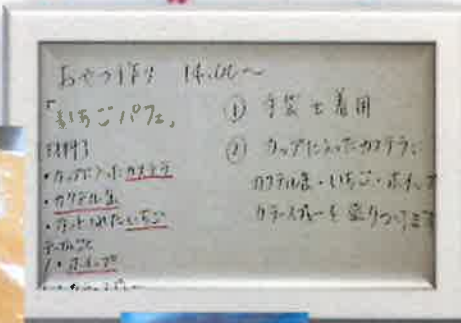 おやつ作り 14:00〜
「いちごパフェ」
材料
・カップに入ったカステラ
・カクテル缶
・カットされたいちご
テーブルごと
・ホイップ
・カラースプレー
① 手袋を着用
② カップに入ったカステラに
カクテル缶・いちご・ホイップ
カラースプレーを盛りつけます